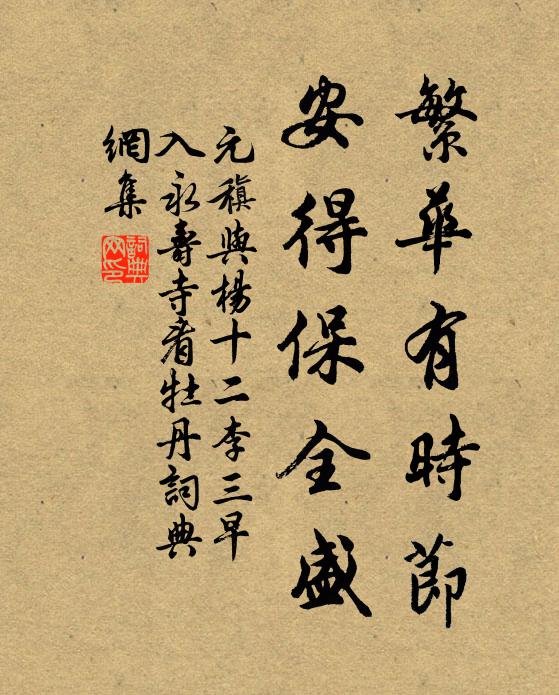 繁華有時節
安得保全盛
元稹與楊十二李三早
入永壽寺看牡丹詞典
網集
詞典
网印